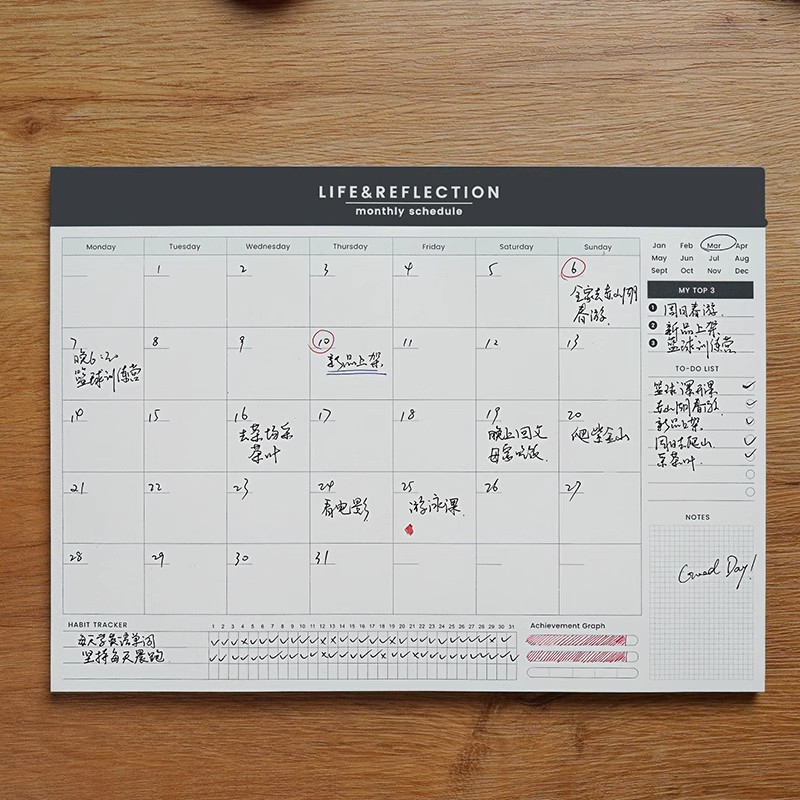 LIFE&REFLECTION
monthly schedule
Monday Tuesday Wednesday Thursday Friday Saturday Sunday
1 2 3 4 5 6
全家去东山湖
春游.
7 8 9 10 11 12 13
晚6:30
篮球训练营
新品上架.
14 15 16 17 18 19 20
去茶场采
茶叶
晚上回父
母家吃饭.
爬紫金山
21 22 23 24 25 26 27
看电影
游泳课.
28 29 30 31
HABIT TRACKER
1 2 3 4 5 6 7 8 9 10 11 12 13 14 15 16 17 18 19 20 21 22 23 24 25 26 27 28 29 30 31
每天学英语单词
坚持每天晨跑.
Achievement Graph
Jan Feb Mar Apr
May Jun Jul Aug
Sept Oct Nov Dec
MY TOP 3
1 周日春游.
2 新品上架.
3 篮球训练营
TO-DO LIST
篮球课开课
东山湖春游.
新品上架.
周日去爬山.
采茶叶.
NOTES
Good Day!